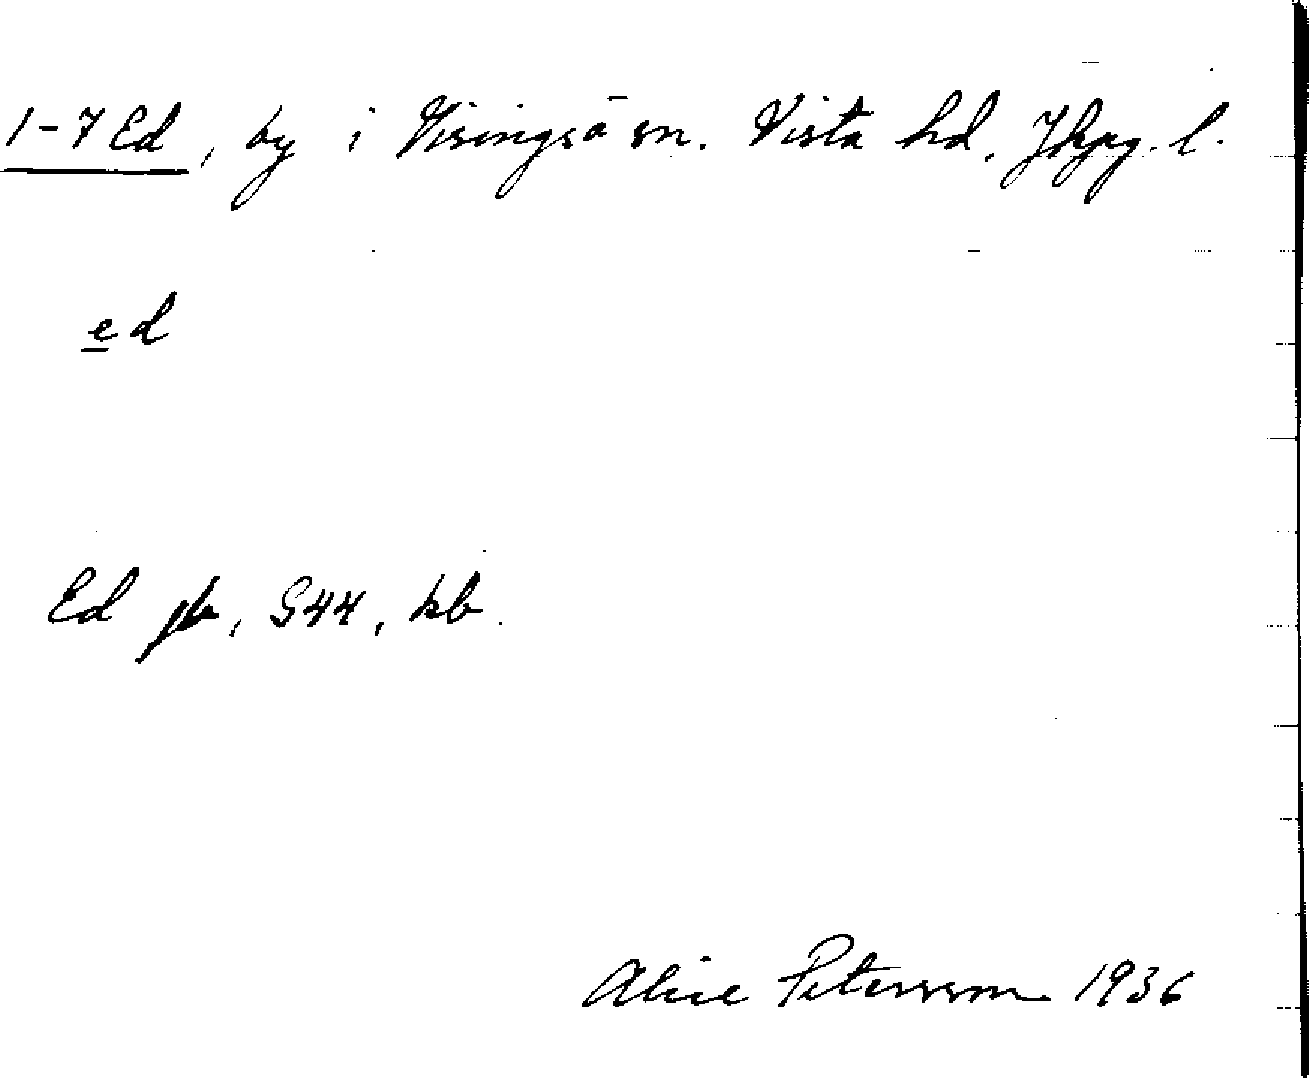 1-7 Ed, by i Visingsö sn. Vista hd. Jkpg. l.
ed
Ed jb, G44, kb.
Alice Petersson 1936